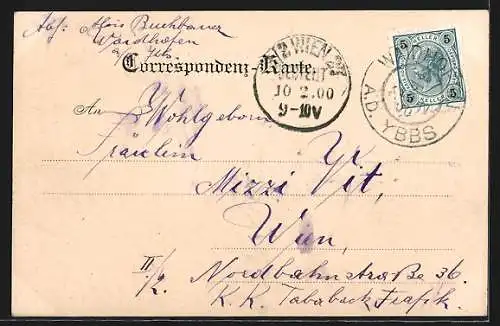 Abs: Alois Buchbauer
Waidhofen
a/ Ybbs.
Correspondenz-Karte.
WIEN
10 2.00
9-10V
5 5
5 5
A.D. YBBS
An
Wohlgeboren
Fräulein
Mizzi Vit,
Wien,
II/2. Nordbahnstraße 36.
K. K. Taback Trafik.